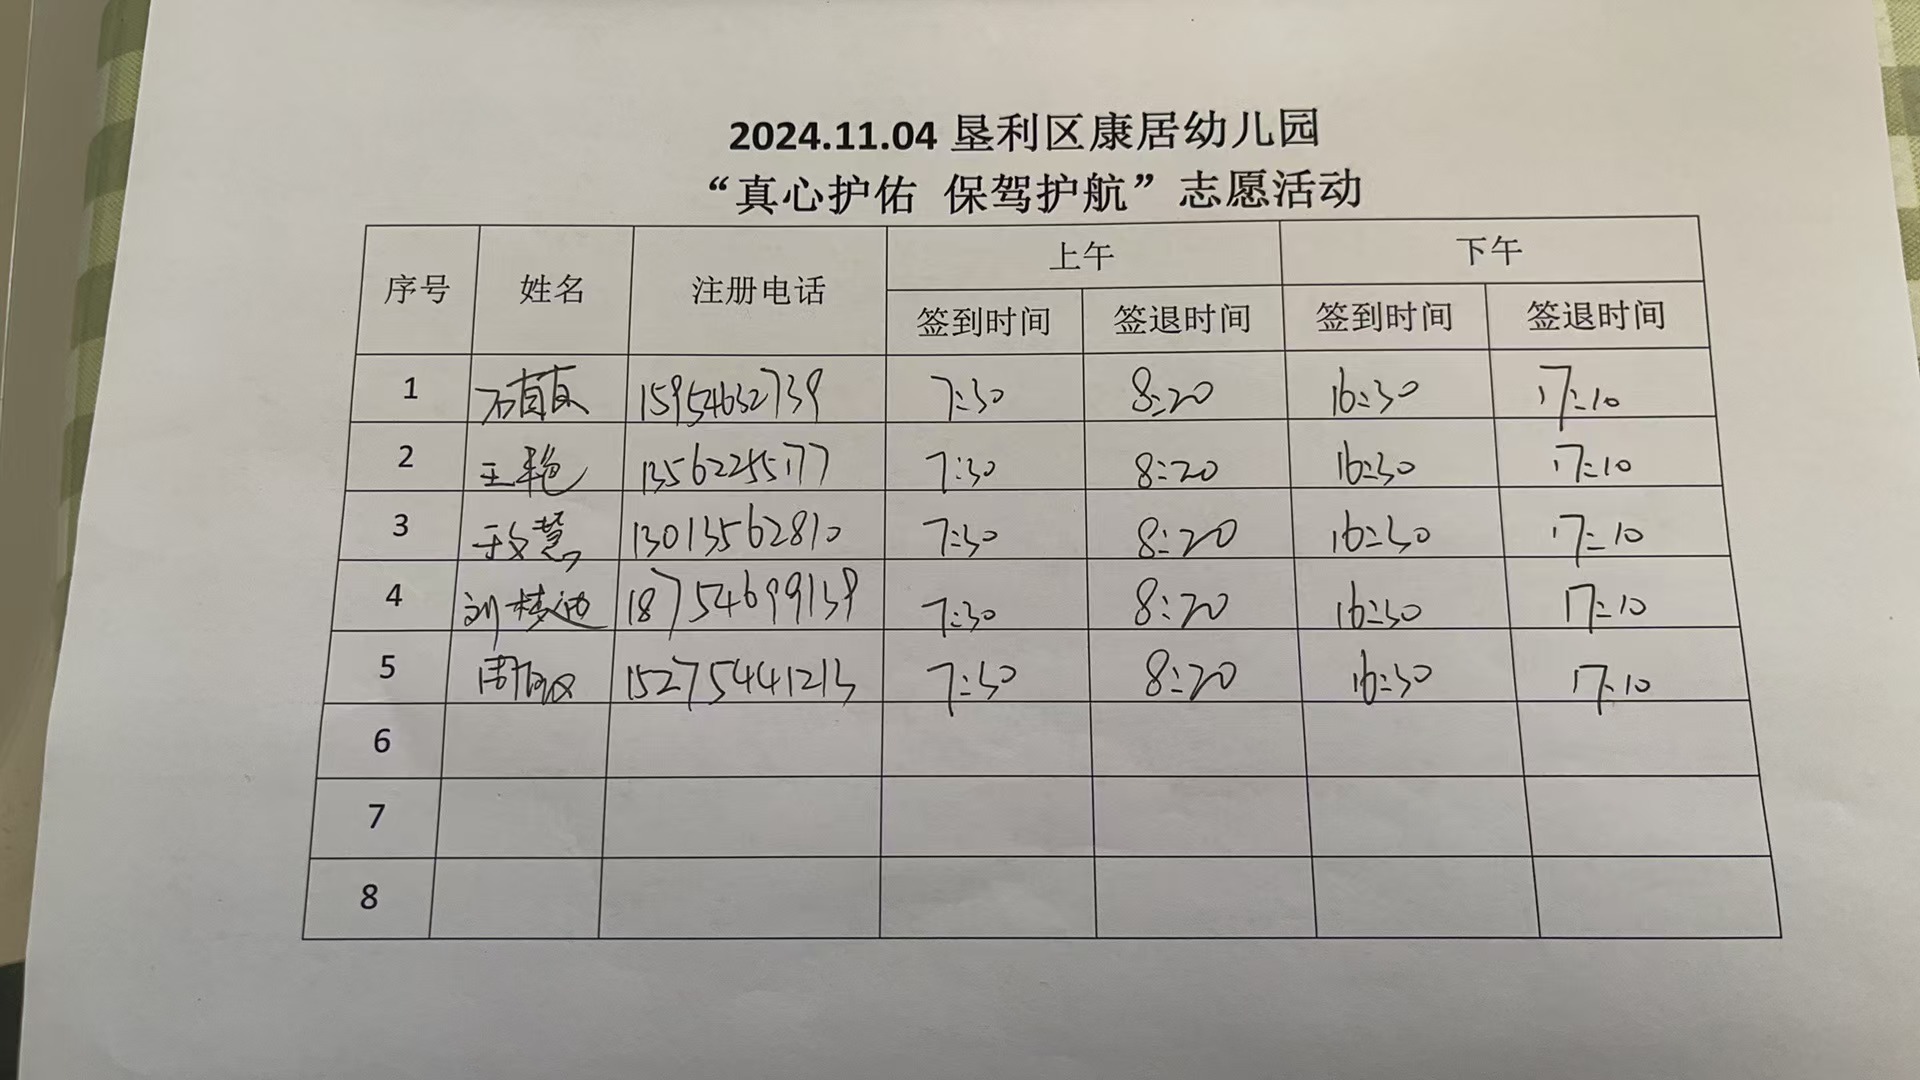 2024.11.04 垦利区康居幼儿园
“真心护佑 保驾护航”志愿活动
序号 姓名 注册电话 上午 下午
签到时间 签退时间 签到时间 签退时间
1 15954632739 7:30 8:20 16:30 17:10
2 王艳 13562255177 7:30 8:20 16:30 17:10
3 于文慧 13013562810 7:30 8:20 16:30 17:10
4 刘梦迪 18754699139 7:30 8:20 16:30 17:10
5 15275441213 7:30 8:20 16:30 17:10
6
7
8